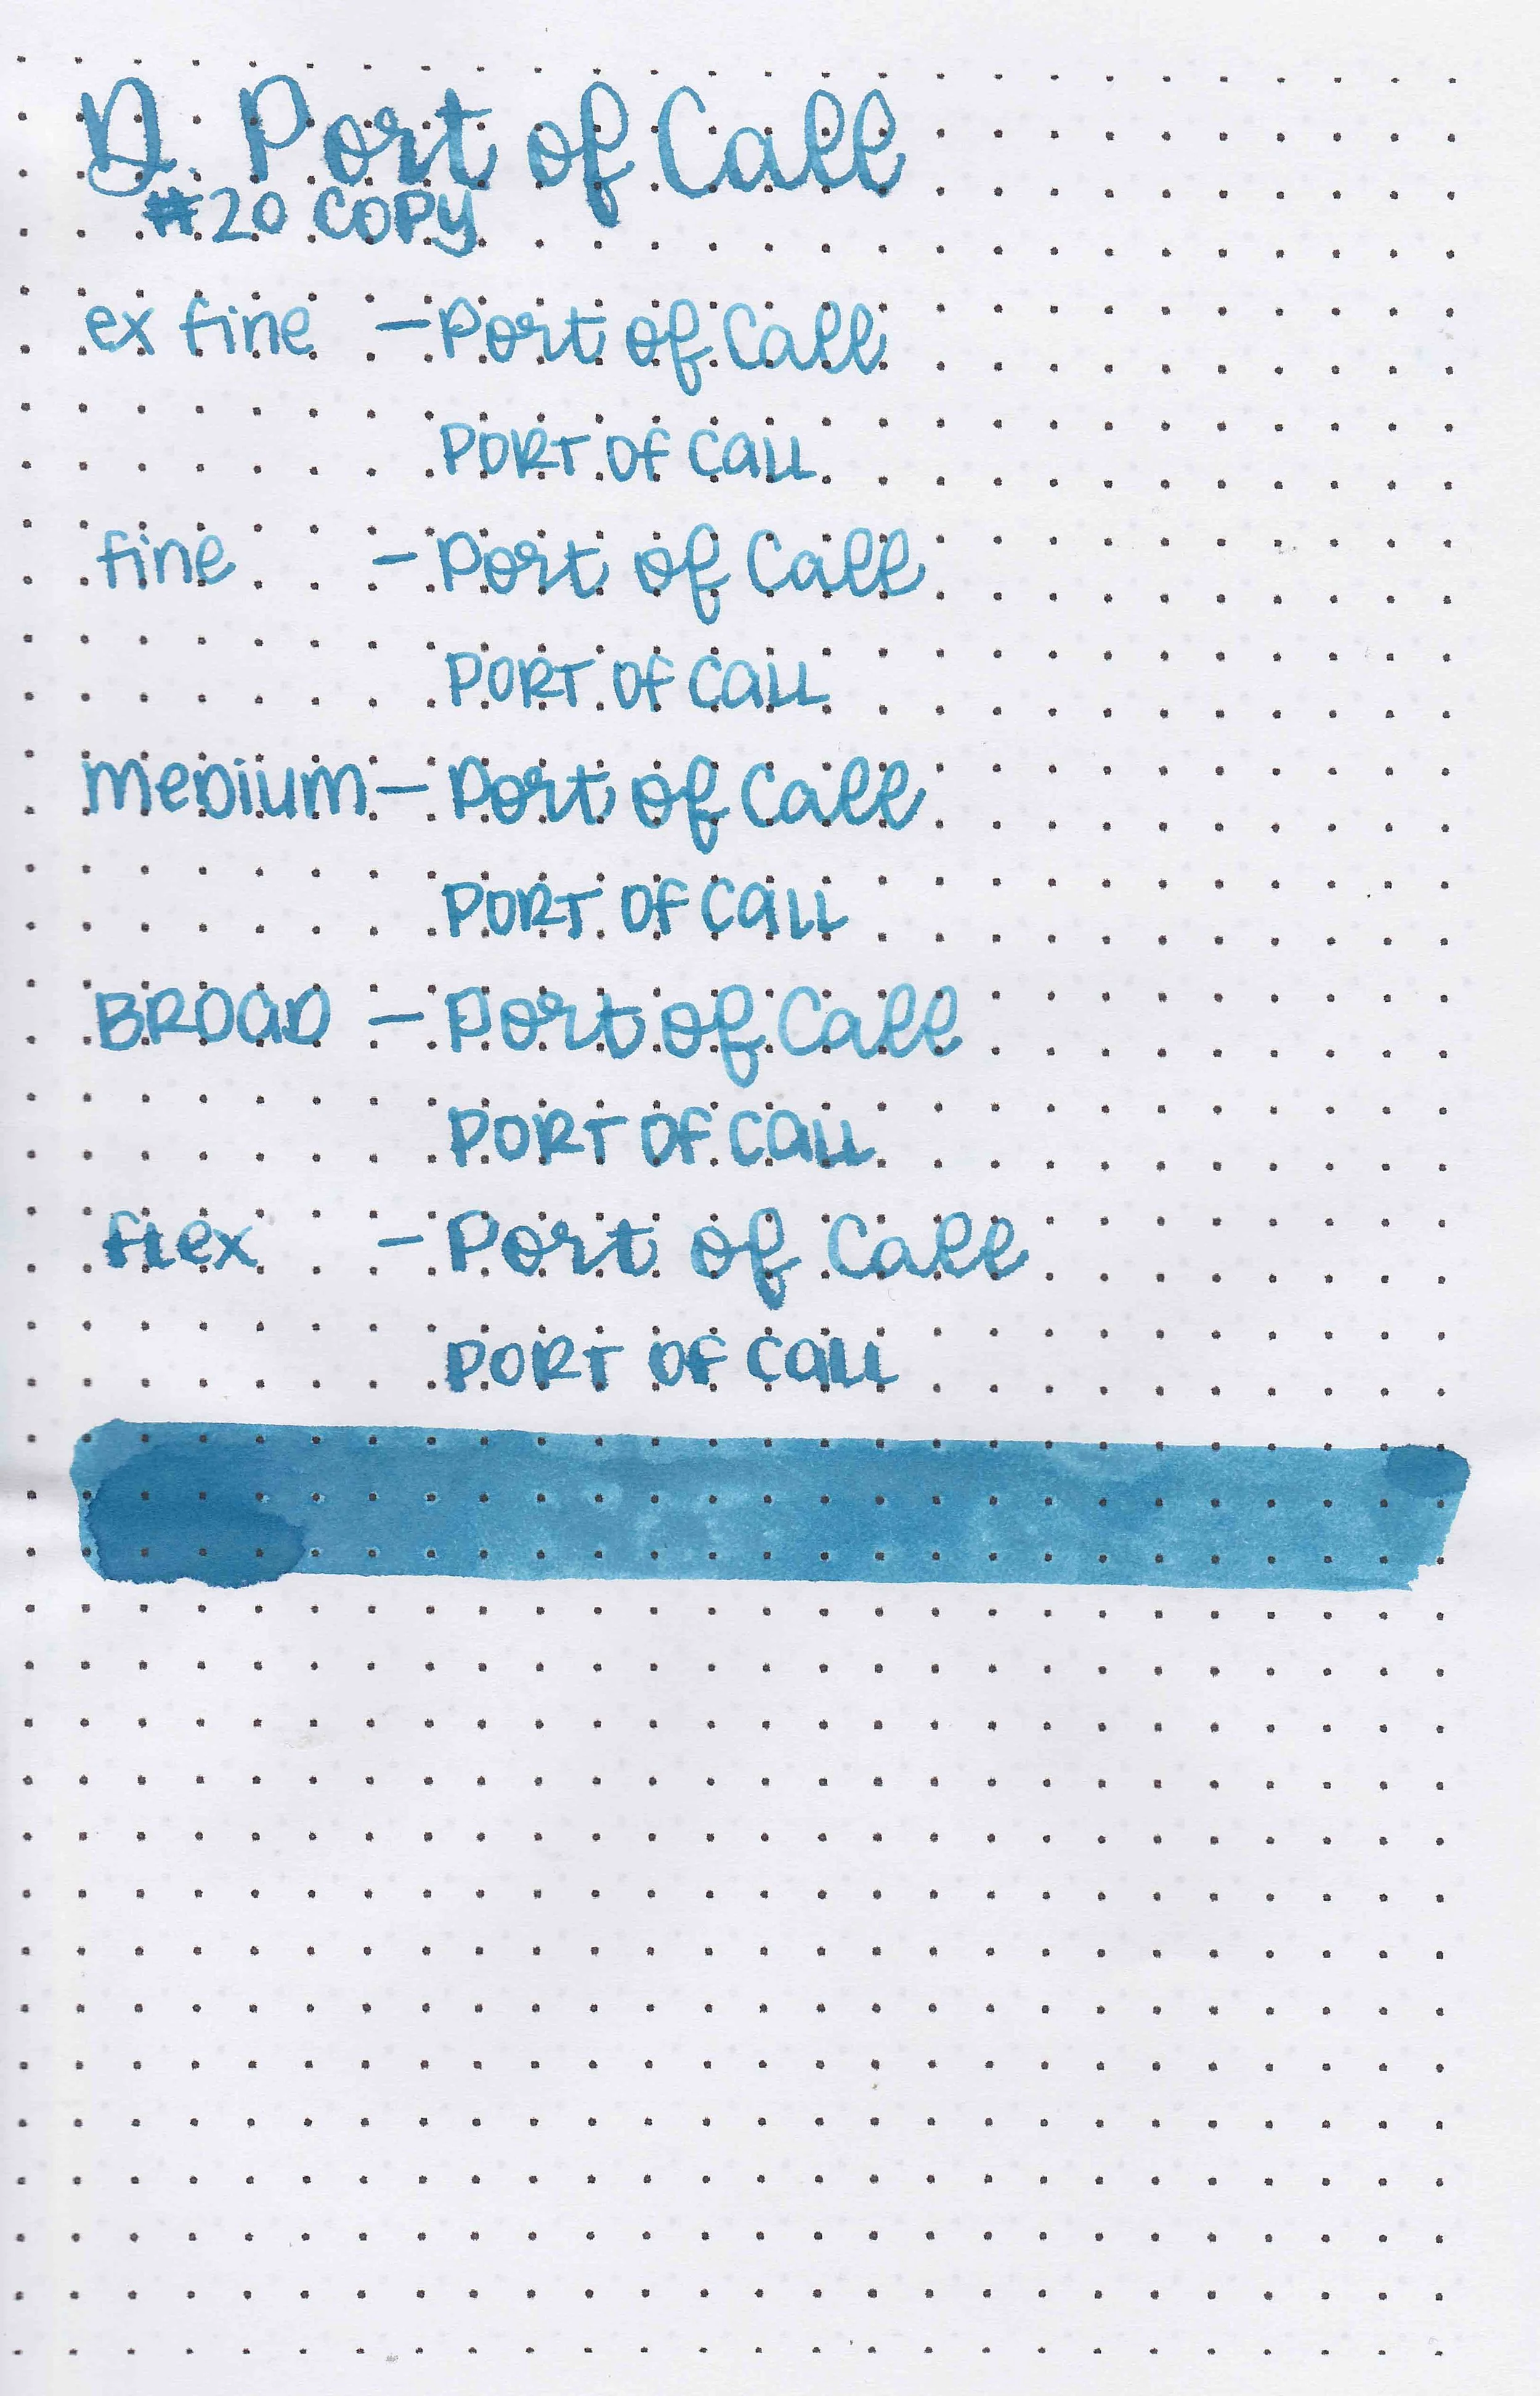 D. Port of Call
#20 COPY
ex fine - Port of Call
PORT OF CALL
fine - Port of Call
PORT OF CALL
MEDIUM - Port of Call
PORT OF CALL
BROAD - Port of Call
PORT OF CALL
flex - Port of Call
PORT OF CALL